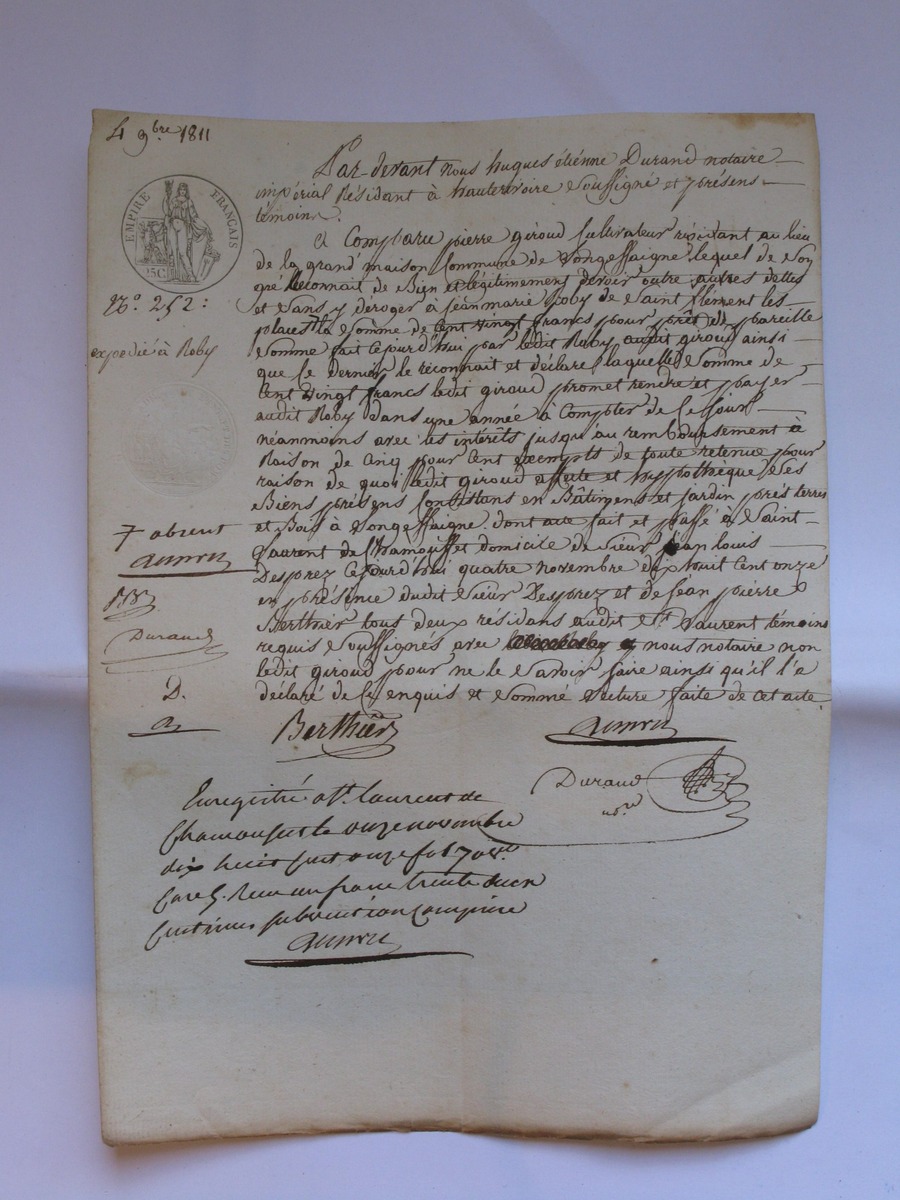 4 9bre 1811
EMPIRE FRANÇAIS
25C
No. 252:
expedié à Roby
7 absent
Durand
D.
Par-devant nous hugues étienne Durand notaire
impérial Résidant à hauterivoire soussigné et présens
témoins.
A Comparu pierre giroud Cultivateur résidant au lieu
de la grand'maison Commune de Longessaigne lequel de son
gré Reconnait de Bien et légitimement devoir outre autres dettes
et sans y déroger à jeanmarie Roby de Saint Clément les
places 7 la somme de Cent vingt francs pour prêt de pareille
somme fait Cejourd'hui par ledit Roby audit giroud ainsi
que Ce dernier le reconnait et déclare laquelle somme de
Cent vingt francs ledit giroud promet rendre et payer
audit Roby dans une année à Compter de Ce jour
néanmoins avec les intérêts jusqu'au remboursement à
Raison de Cinq pour Cent exempts de toute retenue pour
raison de quoi ledit giroud affecte et hypothèque ses
Biens présens Consistans en Bâtimens et jardin prés terres
et Bois à Longessaigne. dont acte fait et passé à Saint
Laurent de Chamousset domicile de sieur jean louis
Desprez Cejourd'hui quatre novembre dix huit Cent onze
en présence dudit sieur Desprez et de jean pierre
Berthier tous deux résidans audit St. Laurent témoins
requis soussignés avec nous notaire non
ledit giroud pour ne le savoir faire ainsi qu'il l'a
déclaré de Ce enquis et sommé lecture faite de cet acte
Berthier
Durand
nore
Enregistré à St. Laurent de
Chamousset le onze novembre
dix huit cent onze fo 170 vo
Care 5. Recu un franc trente deux
Centimes subvention Comprise